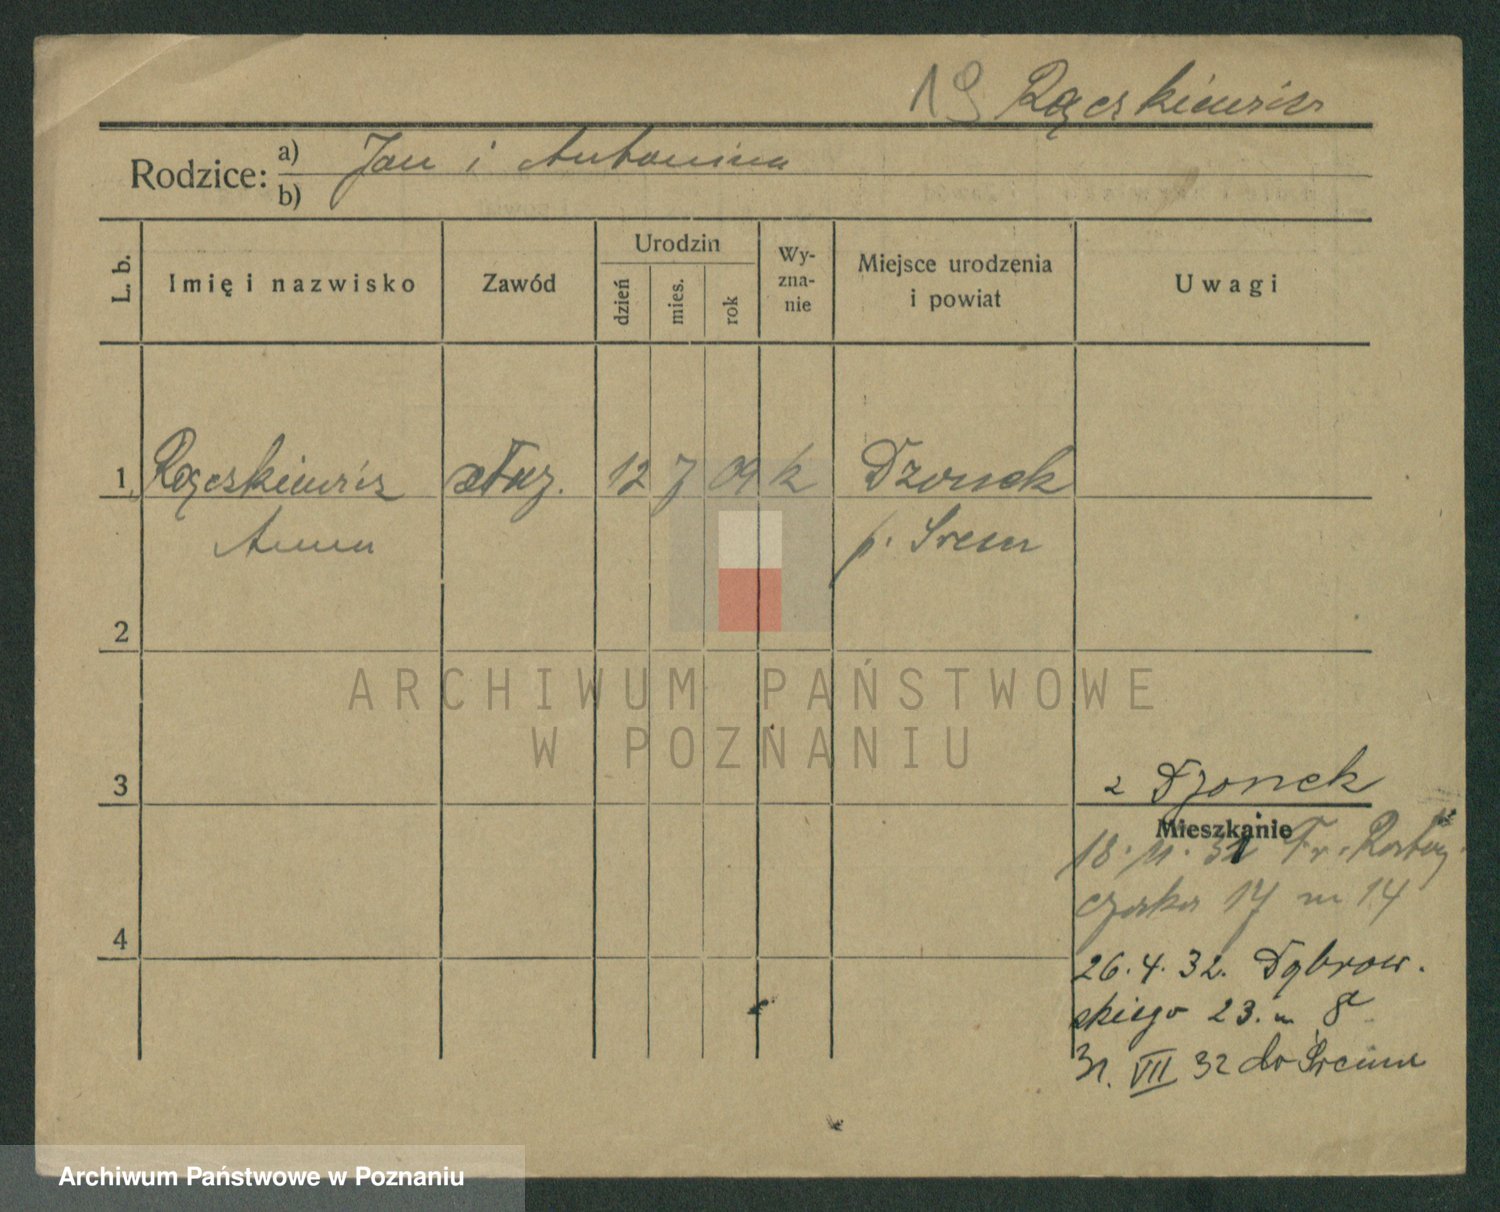 19 Rączkiewicz
Rodzice: a) Jan i Antonina
b)
L. b. Imię i nazwisko Zawód Urodzin dzień mies. rok Wy-zna-nie Miejsce urodzenia i powiat Uwagi
1 Rączkiewicz służ. 12 7 09 k Dzonek
Anna p. Śrem
2
ARCHIWUM PAŃSTWOWE
W POZNANIU
3
z Dzonek
Mieszkanie
18. 11. 31 Fr. Rataj
czaka 17 m 14
4
26. 4. 32. Dąbrow.
skiego 23. m 8
31. VII 32 do Śremu
Archiwum Państwowe w Poznaniu